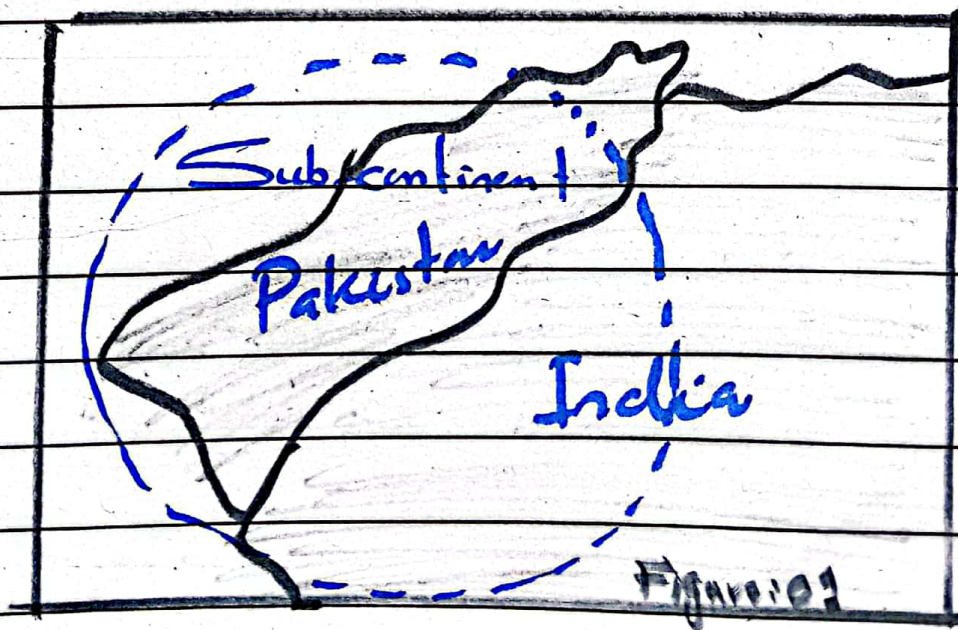 Subcontinent
Pakistan
India
Figure:02